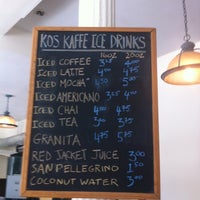 KOS KAFFE ICE DRINKS
16OZ 20OZ
ICED COFFEE 3.25 4.00
ICED LATTE 4.00 4.75
ICED MOCHA
ICED AMERICANO 3.25 4.00
ICED CHAI 4.00 4.75
ICED TEA 3.00 3.75
GRANITA 4.75 5.75
RED JACKET JUICE 3.00
SAN PELLEGRINO 1.50
COCONUT WATER 3.00